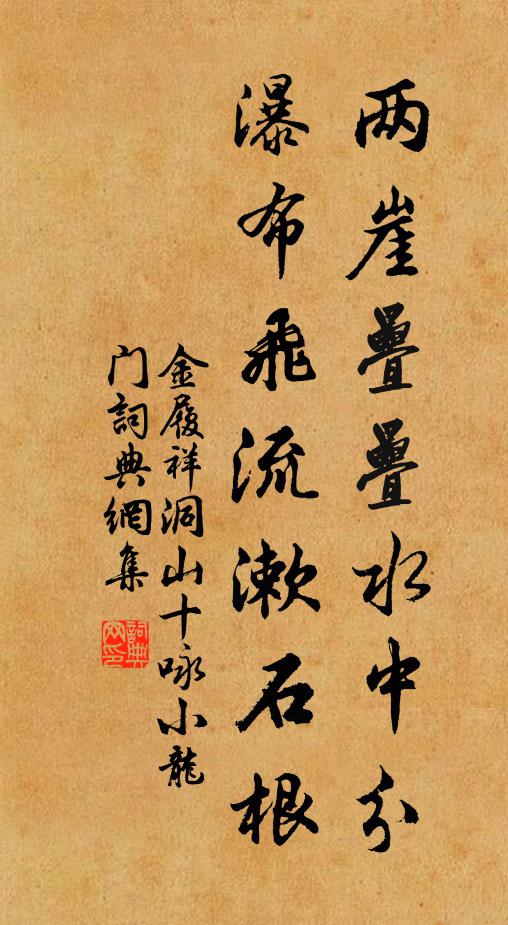 两崖疊疊水中分
瀑布飛流漱石根
金履祥洞山十咏小龍
门詞典網集
詞典
网印